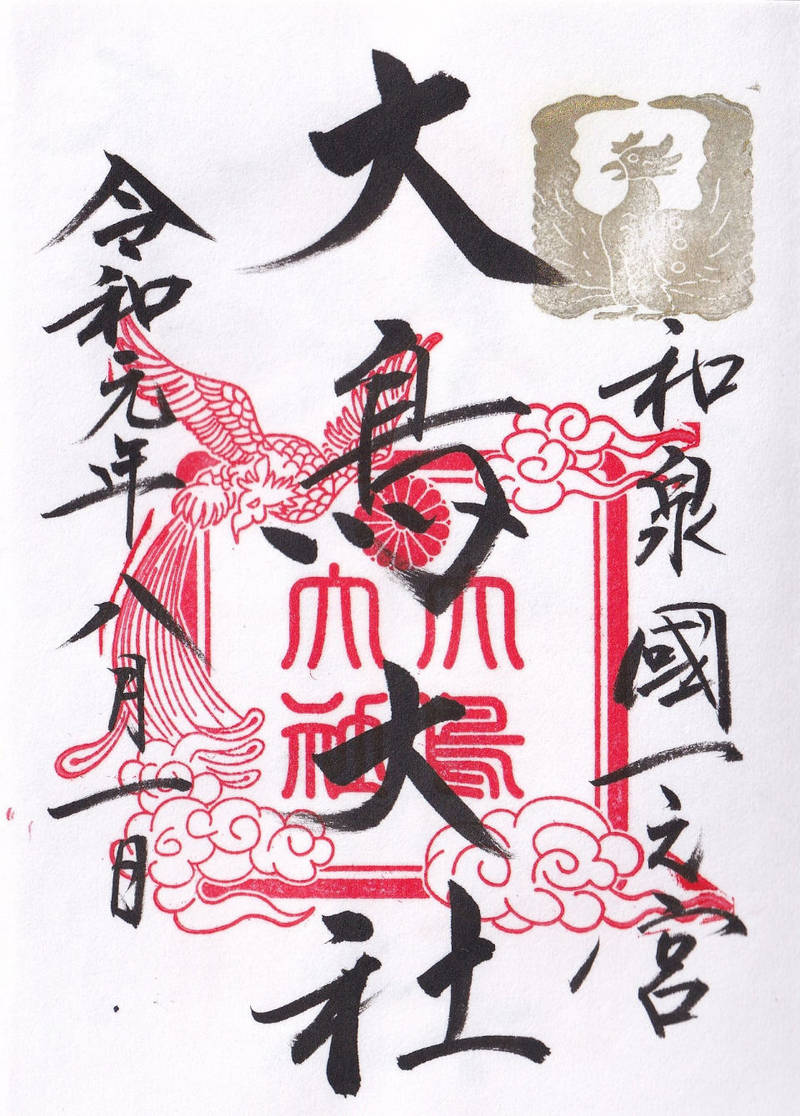 和泉國一之宮
大鳥大社
大鳥大社
令和元年八月一日